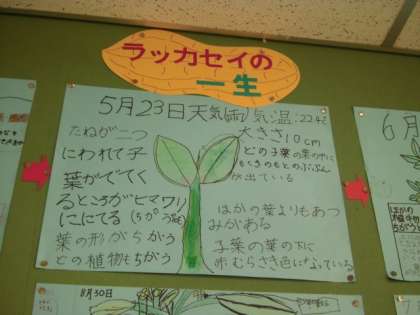 ラッカセイの
一生
5月23日天気(雨)気温:22.4℃
たねが二つ
にわれて子
葉がでてく
るところがヒマワリ
ににてる
葉の形がちがう
どの植物もちがう
大きさ10cm
どの子葉の葉の中に
くきのもとのぶぶん
が出ている
ほかの葉よりもあつ
みがある
子葉の葉の下に
赤むらさき色になっている
6月
8月30日